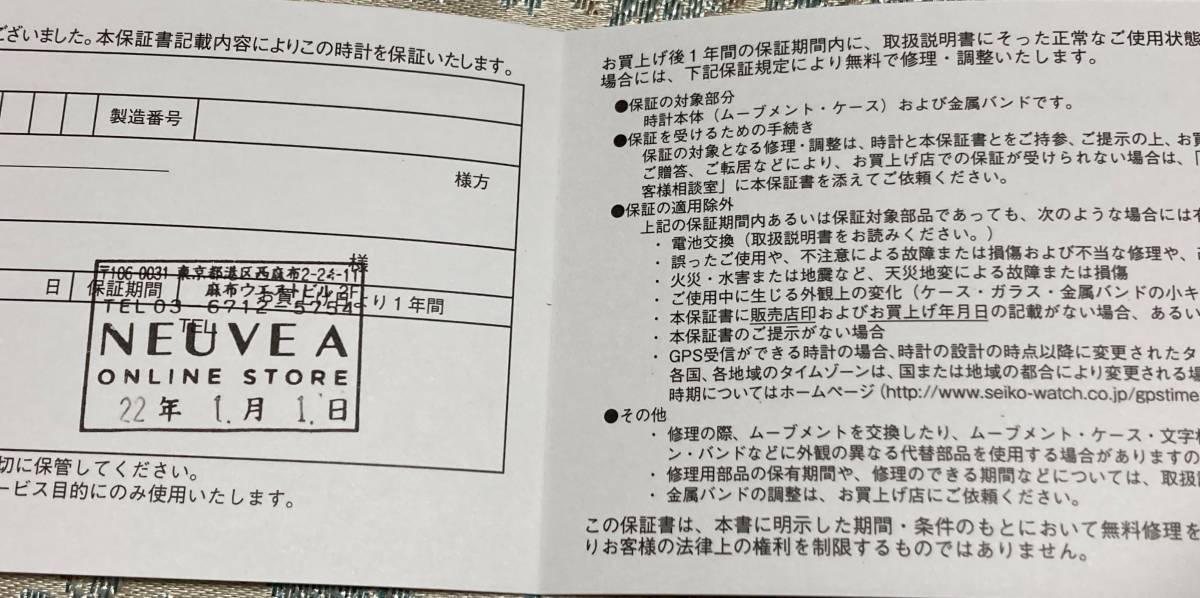 ございました。本保証書記載内容によりこの時計を保証いたします。
製造番号
様方
様
日 保証期間 お買上げ日より1年間
TEL
〒106-0031 東京都港区西麻布2-24-11
麻布ウエストビル2F
TEL 03-6712-5754
NEUVE A
ONLINE STORE
22年 1.月 1.日
切に保管してください。
ービス目的にのみ使用いたします。
お買上げ後1年間の保証期間内に、取扱説明書にそった正常なご使用状態
場合には、下記保証規定により無料で修理・調整いたします。
●保証の対象部分
時計本体（ムーブメント・ケース）および金属バンドです。
●保証を受けるための手続き
保証の対象となる修理・調整は、時計と本保証書とをご持参、ご提示の上、お買
ご贈答、ご転居などにより、お買上げ店での保証が受けられない場合は、「
客様相談室」に本保証書を添えてご依頼ください。
●保証の適用除外
上記の保証期間内あるいは保証対象部品であっても、次のような場合には
・電池交換（取扱説明書をお読みください。）
・誤ったご使用や、不注意による故障または損傷および不当な修理や、
・火災・水害または地震など、天災地変による故障または損傷
・ご使用中に生じる外観上の変化（ケース・ガラス・金属バンドの小キ
・本保証書に販売店印およびお買上げ年月日の記載がない場合、あるい
・本保証書のご提示がない場合
・GPS受信ができる時計の場合、時計の設計の時点以降に変更されたタ
各国、各地域のタイムゾーンは、国または地域の都合により変更される場
時期についてはホームページ（http://www.seiko-watch.co.jp/gpstime
●その他
・修理の際、ムーブメントを交換したり、ムーブメント・ケース・文字
ン・バンドなどに外観の異なる代替部品を使用する場合がありますの
・修理用部品の保有期間や、修理のできる期間などについては、取扱
・金属バンドの調整は、お買上げ店にご依頼ください。
この保証書は、本書に明示した期間・条件のもとにおいて無料修理を
りお客様の法律上の権利を制限するものではありません。